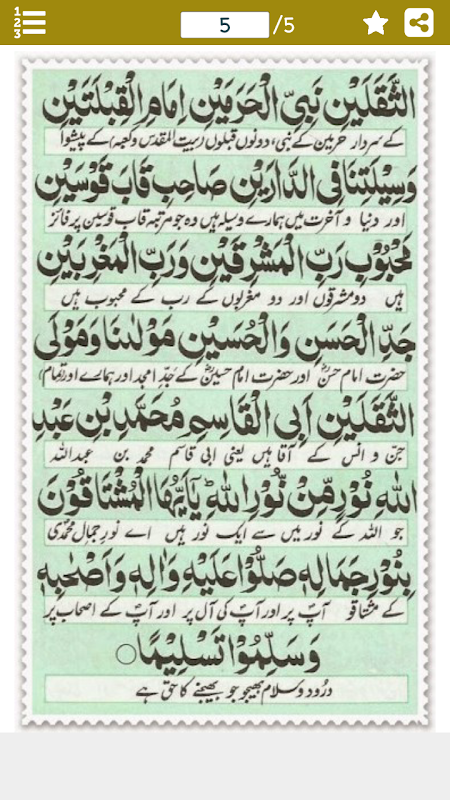 5 /5
الثَّقَلَيْنِ نَبِيِّ الْحَرَمَيْنِ اِمَامِ الْقِبْلَتَيْنِ
کے سردار حرمین کے نبی، دونوں قبلوں (بیت المقدس و کعبہ) کے پیشوا
وَسِيْلَتِنَا فِي الدَّارَيْنِ صَاحِبِ قَابَ قَوْسَيْنِ
اور دنیا و آخرت میں ہمارے وسیلہ ہیں وہ جو مرتبہ قاب قوسین پر فائز
مَحْبُوْبِ رَبِّ الْمَشْرِقَيْنِ وَرَبِّ الْمَغْرِبَيْنِ
ہیں دو مشرقوں اور دو مغربوں کے رب کے محبوب ہیں
جَدِّ الْحَسَنِ وَالْحُسَيْنِ مَوْلٰىنَا وَمَوْلَى
حضرت امام حسنؓ اور حضرت امام حسینؓ کے جدِّ امجد اور ہمارے اور (تمام)
الثَّقَلَيْنِ اَبِي الْقَاسِمِ مُحَمَّدِ بْنِ عَبْدِ
جن و انس کے آقا ہیں یعنی ابی قاسم محمد بن عبداللہ
اللهِ نُوْرٍ مِّنْ نُّوْرِ اللهِ ؕ يٰۤاَيُّهَا الْمُشْتَاقُوْنَ
جو اللہ کے نور میں سے ایک نور ہیں اے نورِ جمالِ محمدی
بِنُوْرِ جَمَالِهٖ صَلُّوْا عَلَيْهِ وَاٰلِهٖ وَاَصْحٰبِهٖ
کے مشتاقو آپؐ پر اور آپؐ کی آل پر اور آپؐ کے اصحاب پر
وَسَلِّمُوْا تَسْلِيْمًا ○
درود و سلام بھیجو جو بھیجنے کا حق ہے